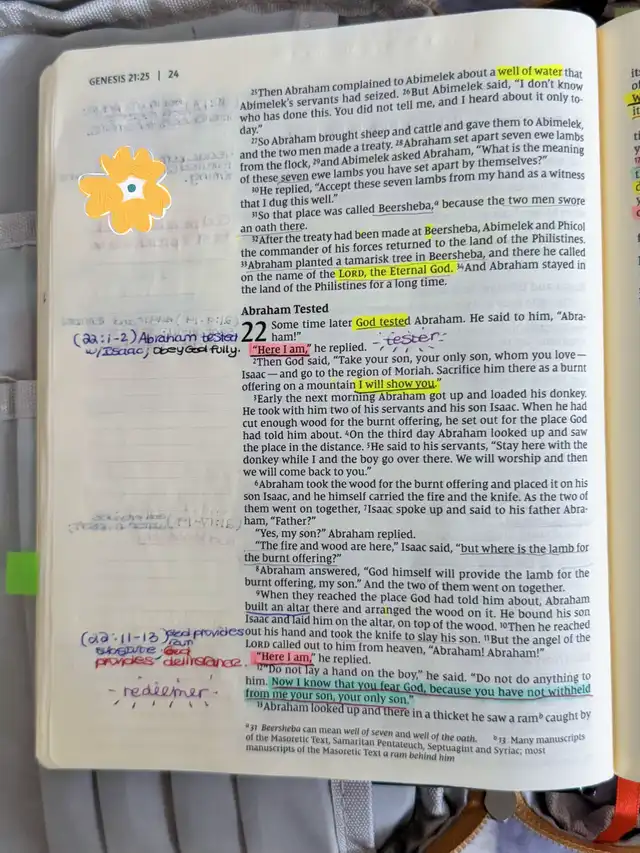 GENESIS 21:25 | 24
25Then Abraham complained to Abimelek about a well of water that
Abimelek's servants had seized. 26But Abimelek said, "I don't know
who has done this. You did not tell me, and I heard about it only to-
day."
27So Abraham brought sheep and cattle and gave them to Abimelek,
and the two men made a treaty. 28Abraham set apart seven ewe lambs
from the flock, 29and Abimelek asked Abraham, "What is the meaning
of these seven ewe lambs you have set apart by themselves?"
30He replied, "Accept these seven lambs from my hand as a witness
that I dug this well."
31So that place was called Beersheba,a because the two men swore
an oath there.
32After the treaty had been made at Beersheba, Abimelek and Phicol
the commander of his forces returned to the land of the Philistines.
33Abraham planted a tamarisk tree in Beersheba, and there he called
on the name of the LORD, the Eternal God. 34And Abraham stayed in
the land of the Philistines for a long time.
Abraham Tested
22 Some time later God tested Abraham. He said to him, "Abra-
ham!"
"Here I am," he replied. - tester -
2Then God said, "Take your son, your only son, whom you love—
Isaac—and go to the region of Moriah. Sacrifice him there as a burnt
offering on a mountain I will show you."
3Early the next morning Abraham got up and loaded his donkey.
He took with him two of his servants and his son Isaac. When he had
cut enough wood for the burnt offering, he set out for the place God
had told him about. 4On the third day Abraham looked up and saw
the place in the distance. 5He said to his servants, "Stay here with the
donkey while I and the boy go over there. We will worship and then
we will come back to you."
6Abraham took the wood for the burnt offering and placed it on his
son Isaac, and he himself carried the fire and the knife. As the two of
them went on together, 7Isaac spoke up and said to his father Abra-
ham, "Father?"
"Yes, my son?" Abraham replied.
"The fire and wood are here," Isaac said, "but where is the lamb for
the burnt offering?"
8Abraham answered, "God himself will provide the lamb for the
burnt offering, my son." And the two of them went on together.
9When they reached the place God had told him about, Abraham
built an altar there and arranged the wood on it. He bound his son
Isaac and laid him on the altar, on top of the wood. 10Then he reached
out his hand and took the knife to slay his son. 11But the angel of the
LORD called out to him from heaven, "Abraham! Abraham!"
"Here I am," he replied.
12"Do not lay a hand on the boy," he said. "Do not do anything to
him. Now I know that you fear God, because you have not withheld
from me your son, your only son."
13Abraham looked up and there in a thicket he saw a ramb caught by
a 31 Beersheba can mean well of seven and well of the oath. b 13 Many manuscripts
of the Masoretic Text, Samaritan Pentateuch, Septuagint and Syriac; most
manuscripts of the Masoretic Text a ram behind him
(22:1-2) Abraham tested
w/Isaac; obey God fully.
(22:11-13) God provides
ram
substitute God
provides deliverance.
- redeemer -